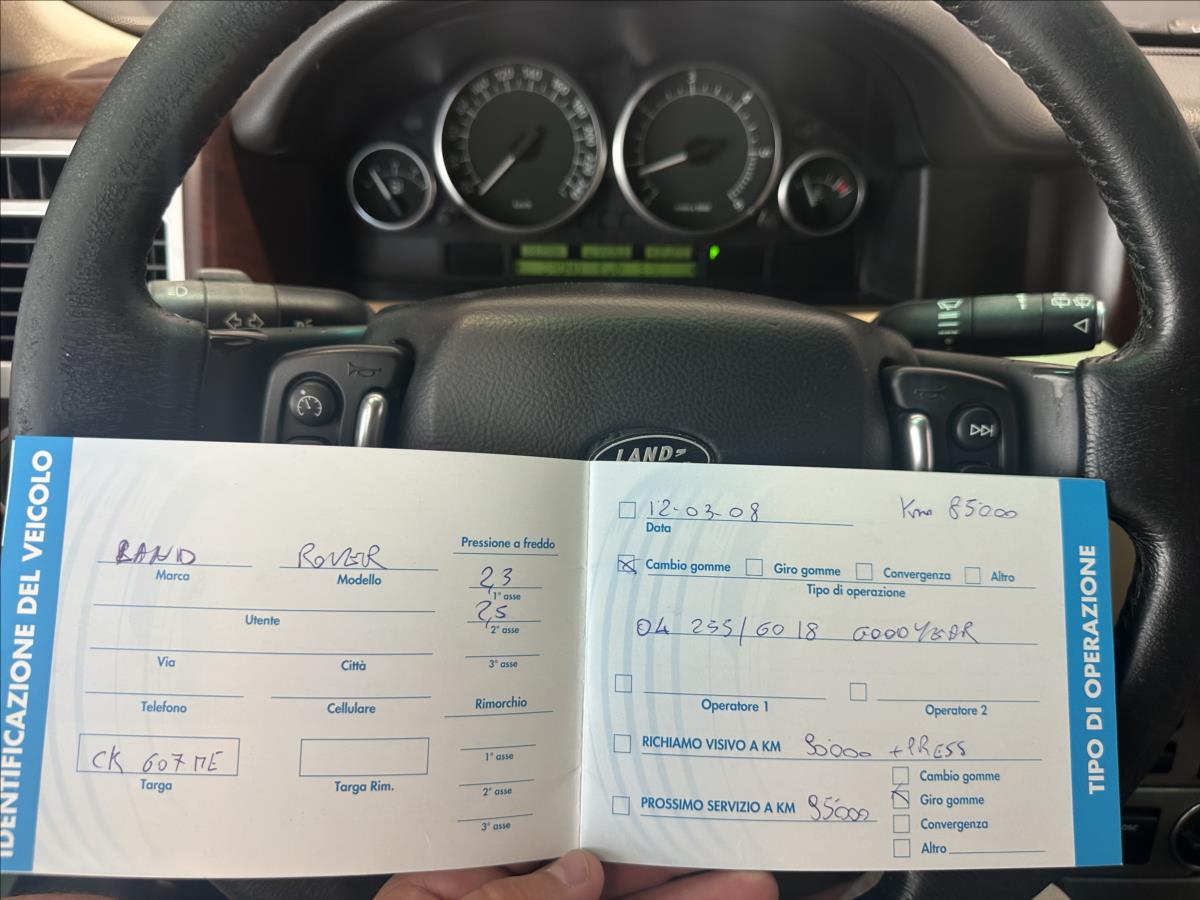 LAND
IDENTIFICAZIONE DEL VEICOLO
LAND ROVER
Marca Modello
Utente
Via Città
Telefono Cellulare
CK 607 ME
Targa Targa Rim.
Pressione a freddo
2,3
1° asse
2,5
2° asse
3° asse
Rimorchio
1° asse
2° asse
3° asse
12-03-08 Km 85000
Data
Cambio gomme Giro gomme Convergenza Altro
Tipo di operazione
04 255/60 18 GOODYEAR
Operatore 1 Operatore 2
RICHIAMO VISIVO A KM 90000 + PRESS
PROSSIMO SERVIZIO A KM 95000
Cambio gomme
Giro gomme
Convergenza
Altro
TIPO DI OPERAZIONE